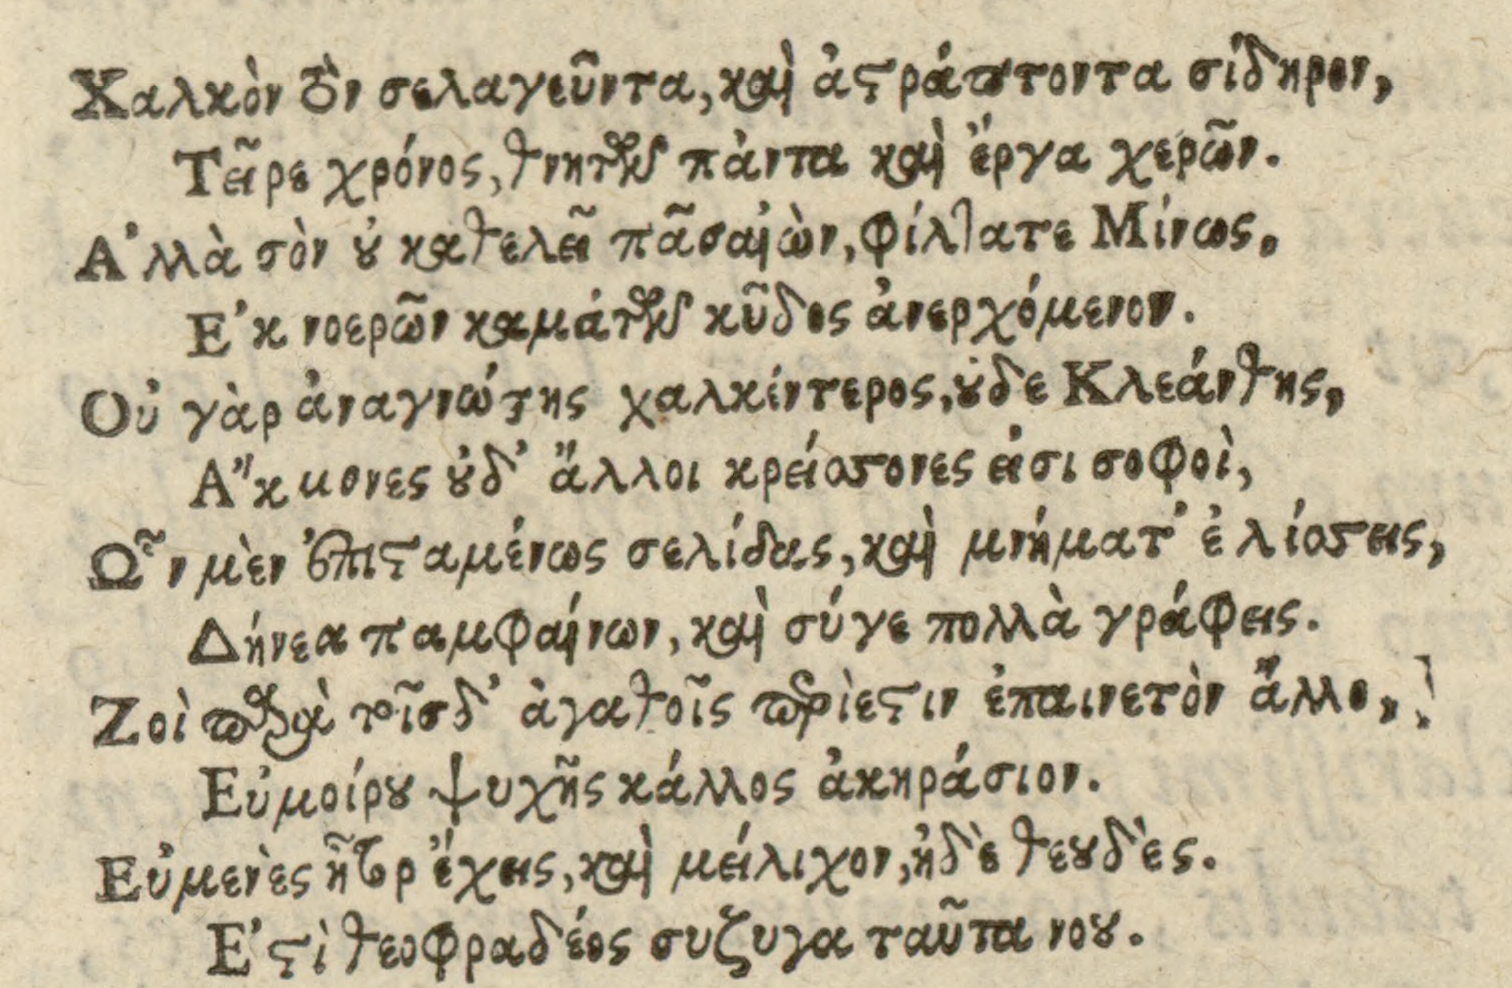 Χαλκὸν τὸν σελαγεῦντα, καὶ ἀστράπτοντα σίδηρον,
Τεῖρε χρόνος, θνητῶν πάντα καὶ ἔργα χερῶν.
Ἀλλὰ σὸν οὐ καθελεῖ πᾶσαἰὼν, φίλτατε Μίνως,
Ἐκ νοερῶν καμάτων κῦδος ἀνερχόμενον.
Οὐ γὰρ ἀναγνώστης χαλκέντερος, οὐδε Κλεάνθης,
Ἄκμονες οὐδ' ἄλλοι κρείσσονες εἰσι σοφοὶ,
Ὧν μὲν ἐπισταμένως σελίδας, καὶ μνήματ' ἑλίσσεις,
Δήνεα παμφαίνων, καὶ σύγε πολλὰ γράφεις.
Σοὶ παρὰ τοῖσδ' ἀγαθοῖς περίεστιν ἐπαινετὸν ἄλλο,
Εὐμοίρου ψυχῆς κάλλος ἀκηράσιον.
Εὐμενὲς ἦτορ ἔχεις, καὶ μείλιχον, ἠδὲ θεουδὲς.
Ἐστὶ θεοφραδέος συζυγα ταῦτα νου.